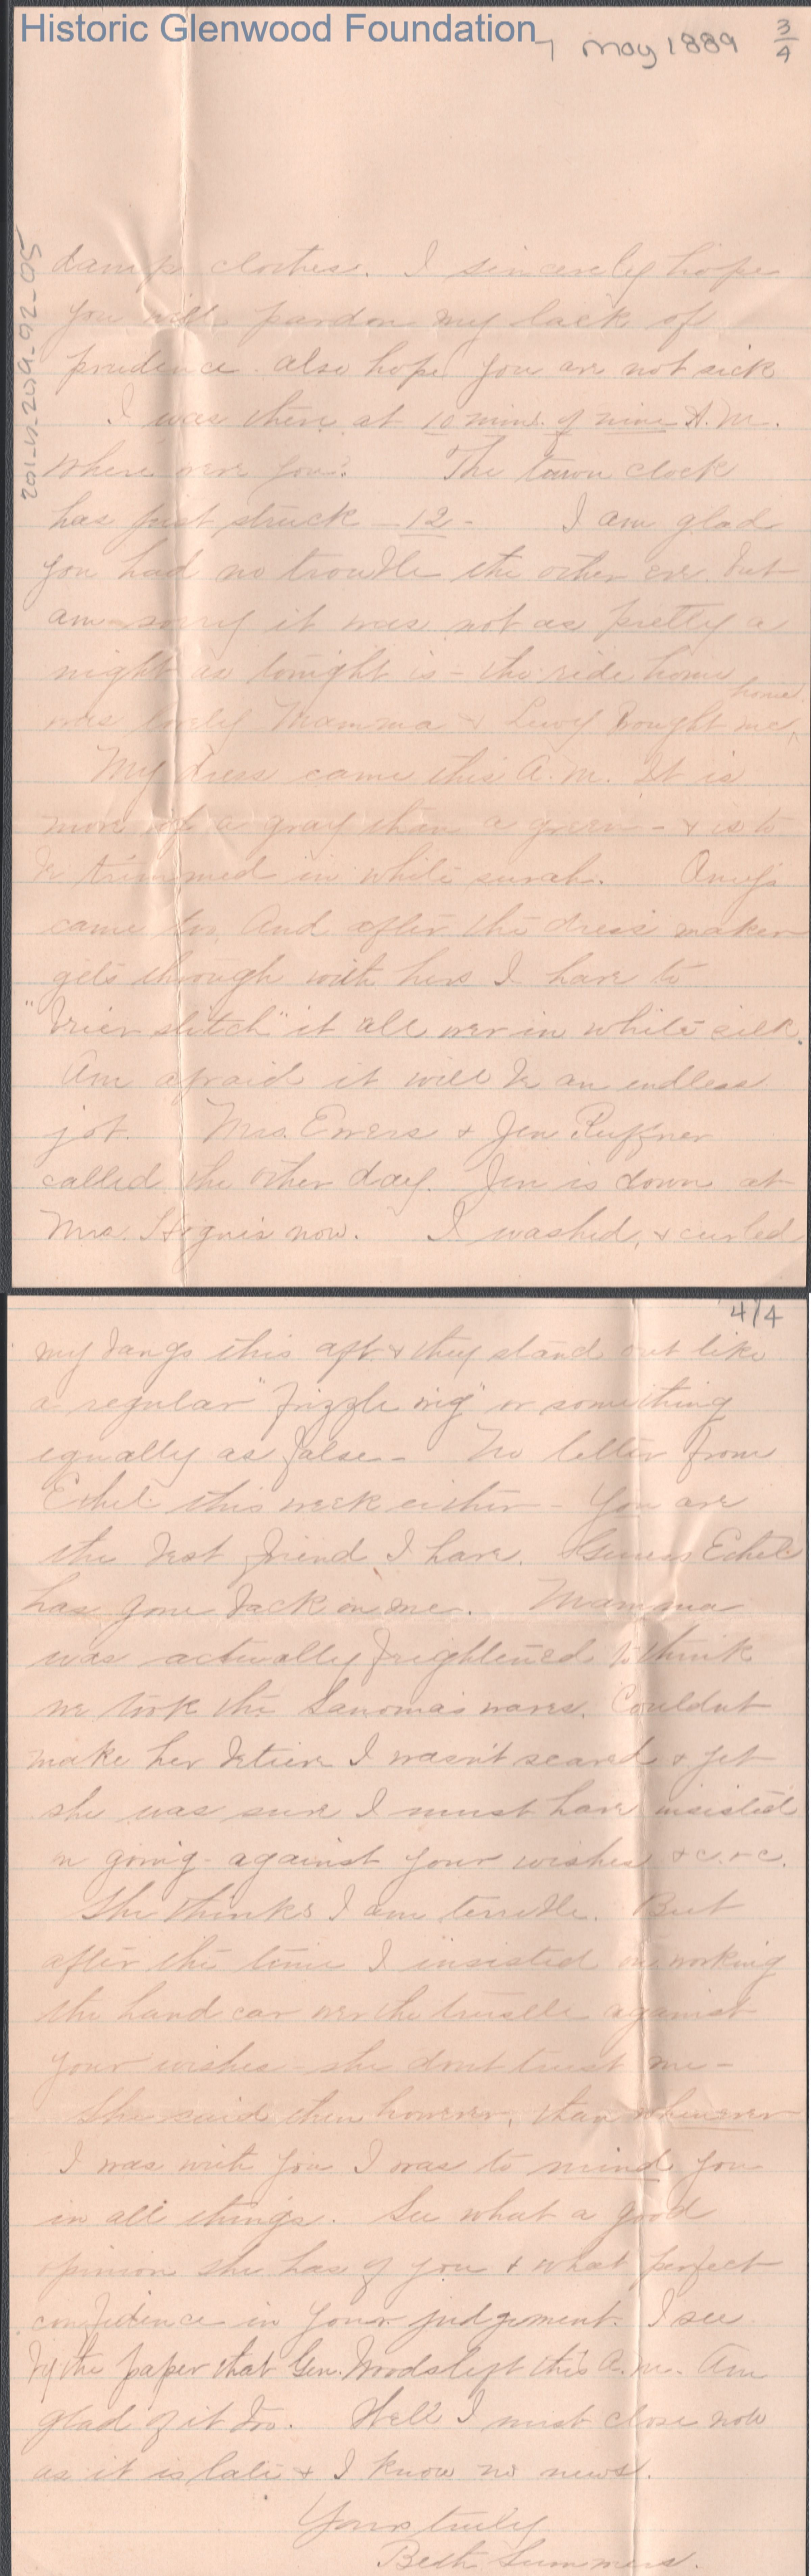 Historic Glenwood Foundation
7 May 1889 3/4
damp clothes. I sincerely hope
you will pardon my lack of
prudence. also hope you are not sick
I was there at 10 mins. of nine A.M.
Where were you? The town clock
has just struck - 12 - I am glad
you had no trouble the other eve. but
am sorry it was not as pretty a
night as tonight is - the ride home
was lovely Mamma & Lewy Bought me home
My dress came this A.M. It is
more of a gray than a green - & is to
be trimmed in white surah. Amy's
came too. And after the dress maker
gets through with hers I have to
"brier stitch" it all over in white silk.
Am afraid it will be an endless
job. Mrs. Ewers & Jen Ruffner
called the other day. Jen is down at
Mrs. now. I washed, & curled
4/4
my bangs this aft. & they stand out like
a regular "frizzle wig" or something
equally as false - No letter from
Ethel this week either - You are
the best friend I have. Guess Ethel
has gone back on me. Mamma
was actually frightened to think
we took the waves. Couldnt
make her believe I wasn't scared & yet
she was sure I must have insisted
on going against your wishes &c. &c.
She thinks I am terrible. But
after the time I insisted on working
the hand car over the trestle against
your wishes - she dont trust me -
She said then however, that whenever
I was with you I was to mind you
in all things. See what a good
opinion she has of you & what perfect
confidence in your judgement. I see
by the paper that Gen. Woods left this a.m. Am
glad of it too. Well I must close now
as it is late & I know no news.
Yours truly
Beth Summers.